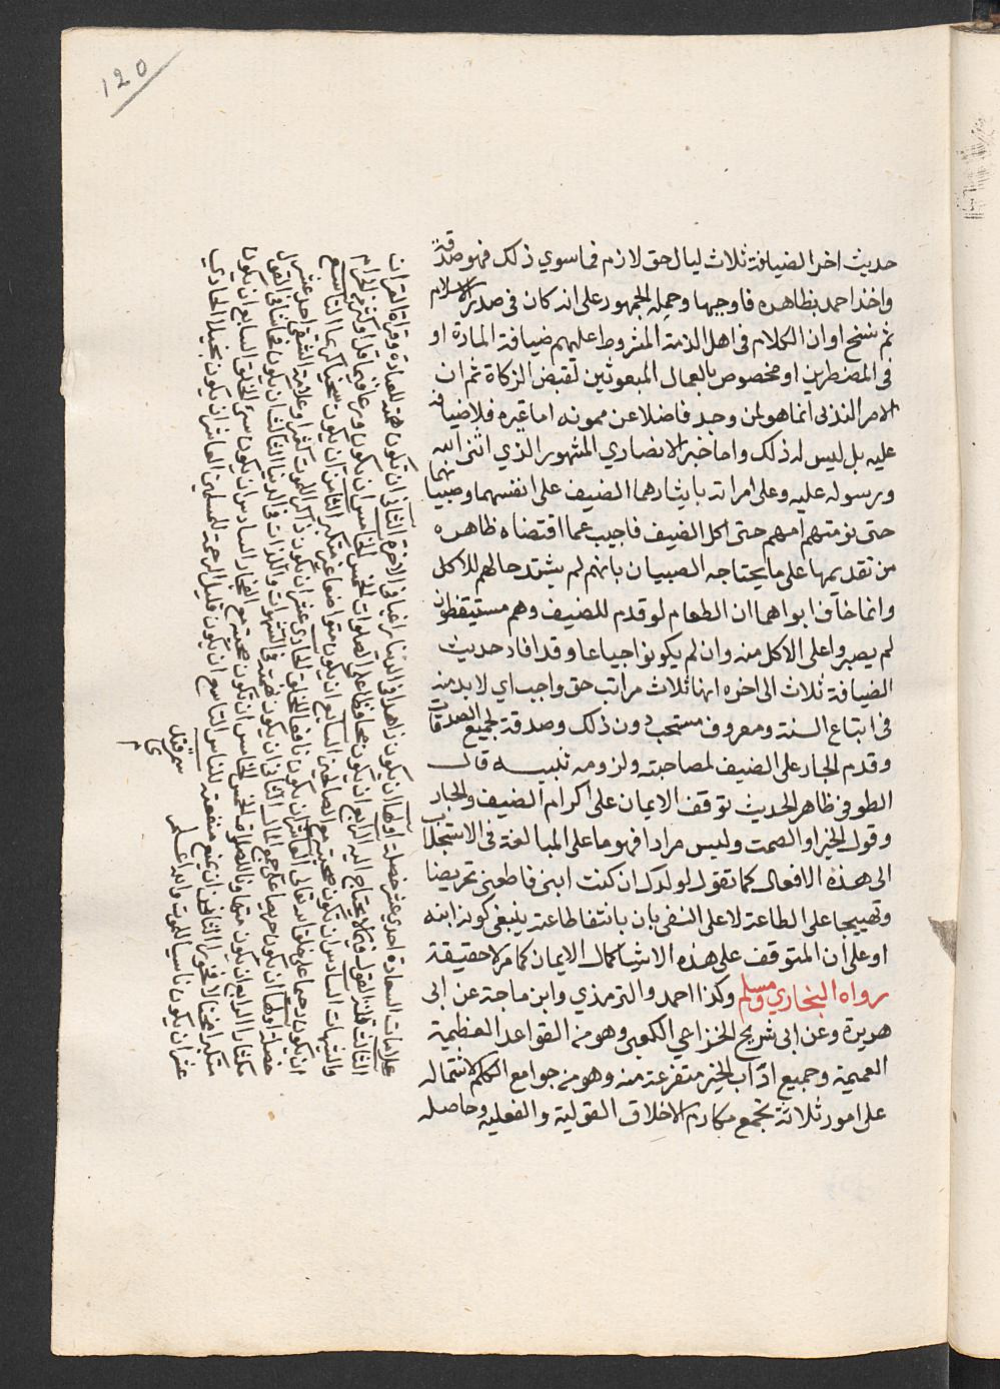 120
حديث اخر الضيافة ثلاث ليال حق لازم فما سوي ذلك فهو صدقة
واخذ احمد بظاهره فاوجبها وحمله الجمهور على انه كان في صدر الاسلام
ثم نسخ او ان الكلام في اهل الذمة المشروط عليهم ضيافة المارة او
في المضطرين او مخصوص بالعمال المبعوثين لقبض الزكاة ثم ان
الامر الندبى انما هو لمن وجد فاضلا عن ممونه اما غيره فلا ضيافة
عليه بل ليس له ذلك واما خبر الانصاري المشهور الذي اثنى الله
ورسوله عليه وعلى امراته بايثارهما الضيف على انفسهما وصبيانهما
حتى نومتهم امهم حتى اكل الضيف فاجيب عما اقتضاه ظاهره
من تقديمها على ما يحتاجه الصبيان بانهم لم يشتد حالهم للاكل
وانما خاف ابواهما ان الطعام لو قدم للضيف وهم مستيقظون
لم يصبروا على الاكل منه وان لم يكونوا جياعا وقد افاد حديث
الضيافة ثلاث الى اخره انها ثلاث مراتب حق واجب اي لا بد منه
في اتباع السنة ومعروف مستحب دون ذلك وصدقة لجميع الصدقات
وقدم الجار على الضيف لمصاحبته ولزومه تنبيه قال
الطوفي ظاهر الحديث توقف الايمان على اكرام الضيف والجار
وقول الخير او الصمت وليس مرادا فهو ما على المبالغة في الاستجلاب
الى هذه الافعال كما تقول لولدك ان كنت ابنى فاطعنى تحريضا
وتهييجا على الطاعة لا على النفى بان بانتفا طاعته ينبغي كونه ابنه
او على ان المتوقف على هذه الاشيا كمال الايمان كما مر لا حقيقة
رواه البخاري ومسلم وكذا احمد والترمذي وابن ماجة عن ابى
هريرة وعن ابى شريح الخزاعي الكعبى وهو من القواعد العظيمة
العميمة وجميع اداب الخير متفرعة منه وهو من جوامع الكلم لاشماله
على امور ثلاثة تجمع مكارم الاخلاق القولية والفعليه وحاصله
علامات السعادة احدي عشر خصلة اولها ان يكون زاهدا في الدنيا راغبا في الاخرة الثاني ان تكون همته للعبادة وقراة القران
الثالث قلة القول فيما لا يحتاج اليه الرابع ان يكون محافظا على الصلوات الخمس الخامس ان يكون ورعا فيما قل او كثر من الحرام
والشبهات السادس ان تكون صحبته مع الصالحين السابع ان يكون متواضعا غير متكبر الثامن ان يكون سخيا كريما التاسع
ان يكون رحيما على خلق الله تعالى العاشر ان يكون نافعا للخلق الحادي عشر ان يكون ذاكر الموت كثيرا وعلامة الشقى احد عشر
خصلة اولها ان يكون حريصا على جمع المال الثاني ان يكون همته في الشهوات واللذات والدنيا الثالث ان يكون فحاشا في القول
مكثارا الرابع ان يكون متهاونا بالصلوات الخمس الخامس ان تكون صحبته مع الفجار السادس ان يكون سئ الخلق السابع ان يكون
متكبرا مختالا فخورا الثامن ان يمنع منفعته للناس التاسع ان يكون قليل الرحمة للمسلمين العاشر ان يكون بخيلا الحادي
عشر ان يكون ناسيا للموت والله اعلم